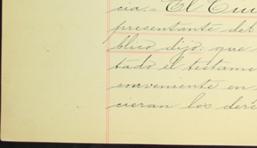 cia.- El Ciu
presentante del
blico dijo: que
tado el testame
inconveniente en
cieran los dere